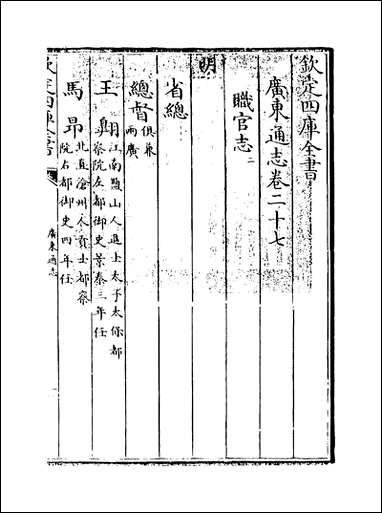 欽定四庫全書
廣東通志卷二十七
職官志二
明
省總
總督俱兼兩廣
王翺江南鹽山人進士太子太保都
察院左都御史景泰三年任
馬昂北直滄州人貢士都察
院右都御史四年任
欽定四庫全書
廣東通志